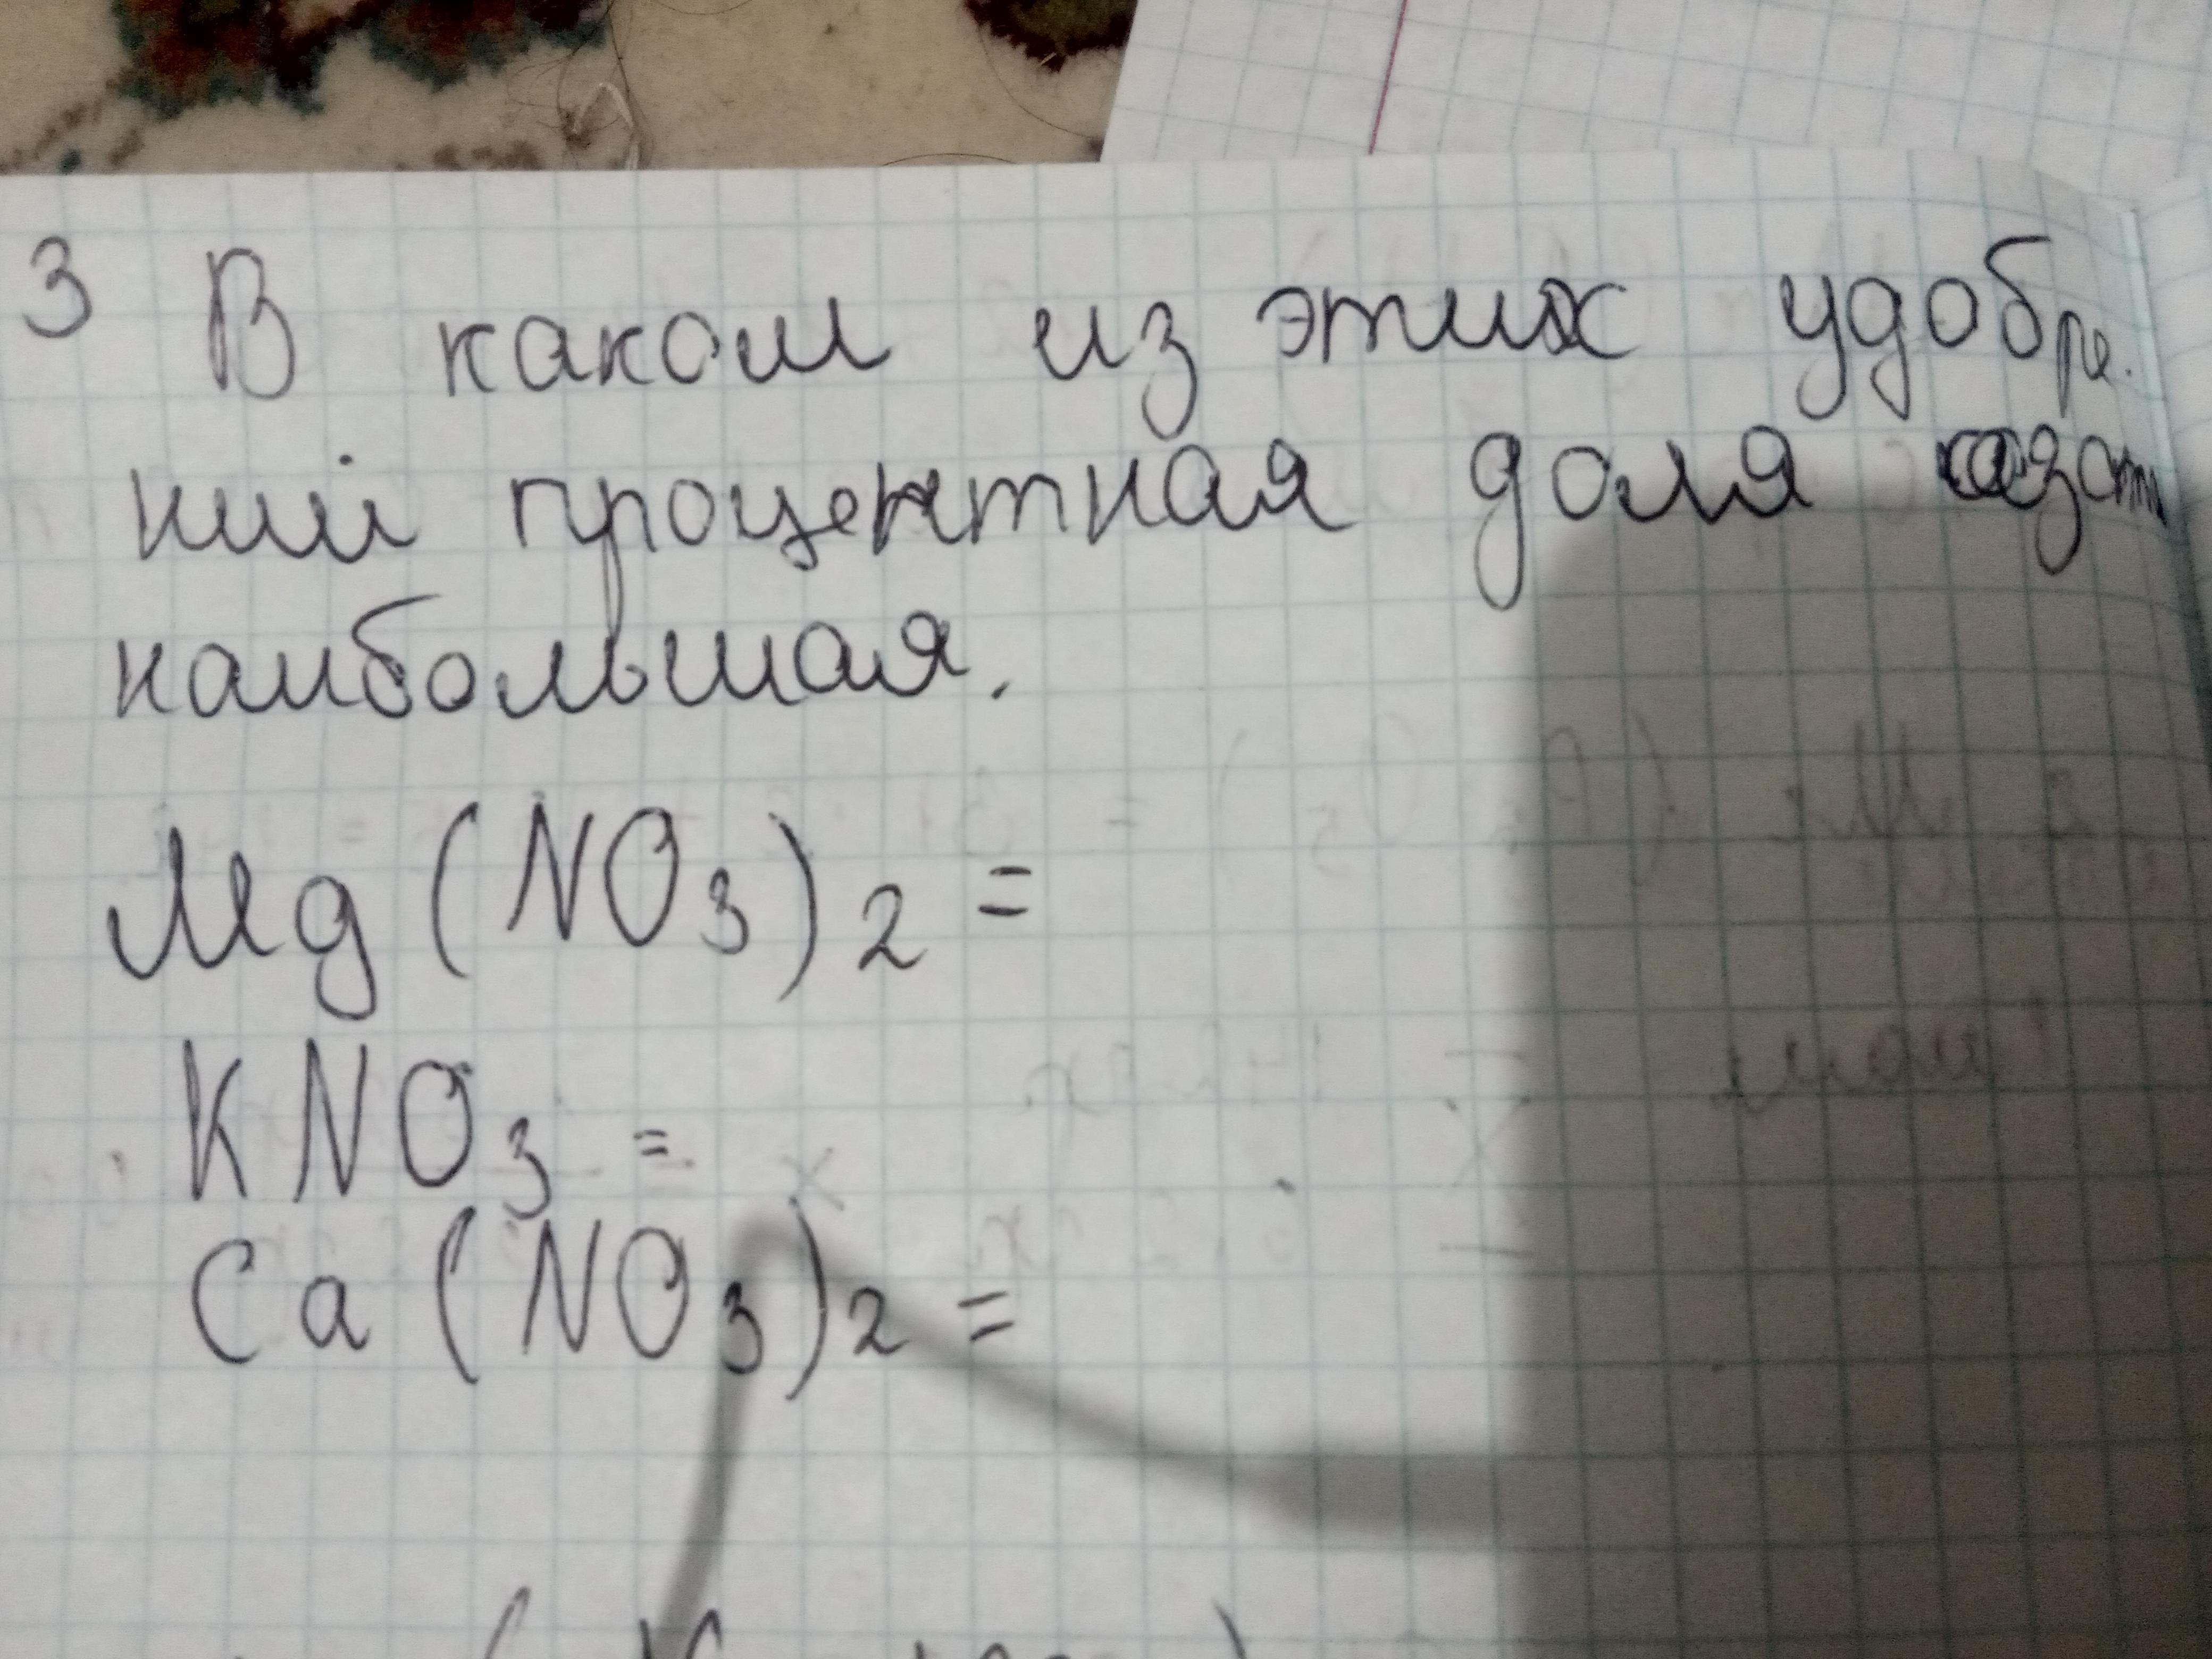 3 В каком из этих удобре.
ний процентная доля азот
наибольшая.
Mg(NO3)2 =
KNO3 =
Ca(NO3)2 =